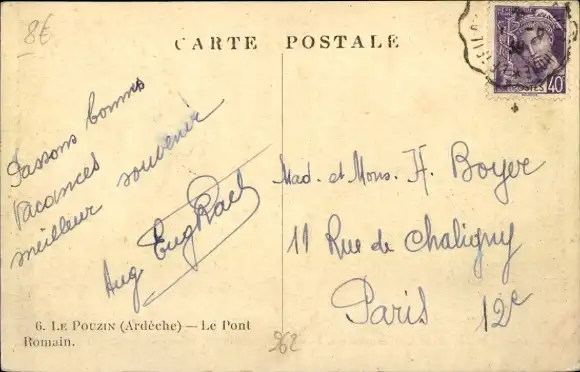 8€
CARTE POSTALE
POSTES 40
Passons bonnes
vacances
meilleur souvenir
Aug Eug Rael
Mad. et Mons. H. Boyer
11 Rue de Chaligny
Paris 12e
6. LE POUZIN (Ardèche) — Le Pont
Romain.
262